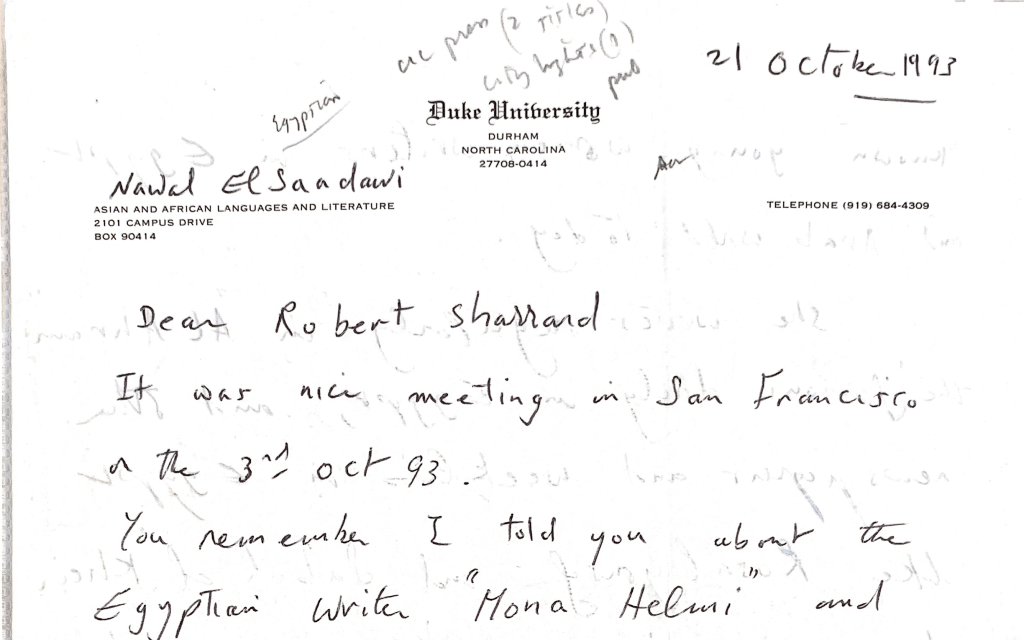 UC press (2 titles)
City Lights (1)
pub
21 October 1993
Egyptian
Duke University
DURHAM
NORTH CAROLINA
27708-0414
Nawal El Saadawi
ASIAN AND AFRICAN LANGUAGES AND LITERATURE
2101 CAMPUS DRIVE
BOX 90414
TELEPHONE (919) 684-4309
Dear Robert Sharrard
It was nice meeting in San Francisco
on the 3rd Oct 93.
You remember I told you about the
Egyptian writer "Mona Helmi" and